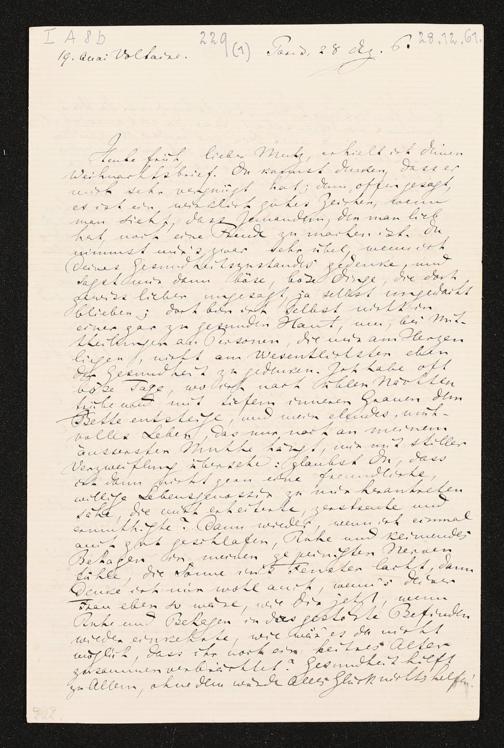 I A 8 b
229 (1)
28.12.61.
19. Quai Voltaire.
Paris, 28 Dez. 61
Heute früh, liebe Minna, erhielt ich Deinen
Weihnachtsbrief. Du kannst denken, dass er
mich sehr vergnügt hat; denn, offen gesagt,
es ist ein wirklich gutes Zeichen, wenn
man sieht, dass Jemandem, den man lieb
hat, noch eine Freude zu machen ist. Du
nimmst mir's zwar sehr übel, wenn ich
Deines Gesundheitszustandes gedenke, und
sagst mir dann böse, böse Dinge, die doch
gewiss lieber ungesagt, ja selbst ungedacht
blieben; doch bin ich selbst nicht in
einer gar zu gesunden Haut, um, bei Mit-
theilungen an Personen, die mir am Herzen
liegen, nicht am Wesentlichsten eben
der Gesundheit zu gedenken. Ich habe oft
böse Tage, wo ich nach üblen Nächten
früh mit tiefem inneren Grauen dem
Bette entsteige, und mein elendes, müh-
volles Leben, das nur noch an meinem
äussersten hängt, mir mit stiller
Verzweiflung übersehe: glaubst Du, dass
ich dann nicht gern eine freundliche,
willige Lebensgenossin zu mir herantreten
sähe, die mich erheiterte, zerstreute und
ermuthigte? Dann wieder, wenn ich einmal
auch gut geschlafen, Ruhe und keimendes
Behagen in meinen gepeinigten Nerven
fühle, die Sonne in's Fenster lacht, dann
denke ich mir wohl auch, wenn's deiner
Frau eben so wäre, wie dir jetzt, wenn
Ruhe und Behagen in das gestörte Befinden
wieder einkehrte, wie wär' es da nicht
möglich, dass ihr noch ein heitres Alter
zusammen verbrächtet? Gesundheit hilft
zu Allem, ohne dem würde alles Glück nichts helfen!